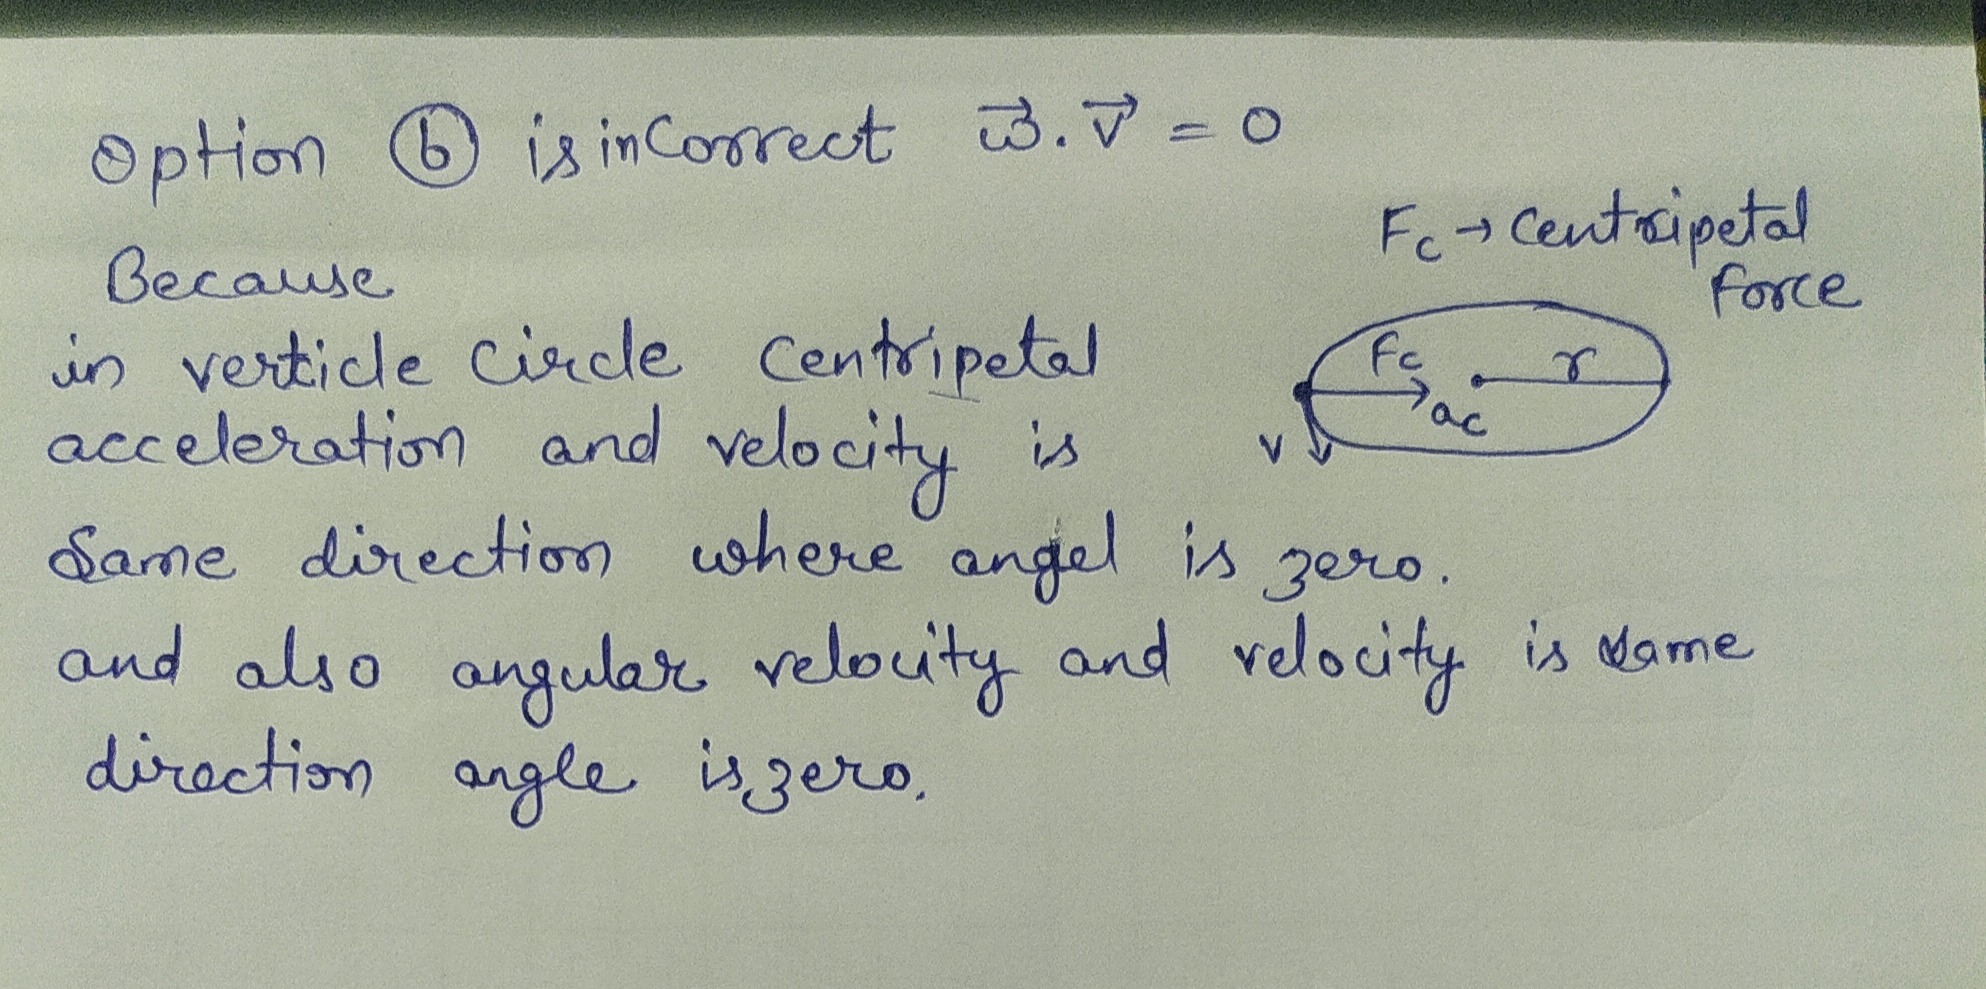 Option ⓑ is incorrect ω⃗.v⃗ = 0
Fc → Centripetal
force
Because
in verticle circle centripetal
acceleration and velocity is
Same direction where angel is zero.
and also angular velocity and velocity is same
direction angle is zero.
Fc
r
ac
v